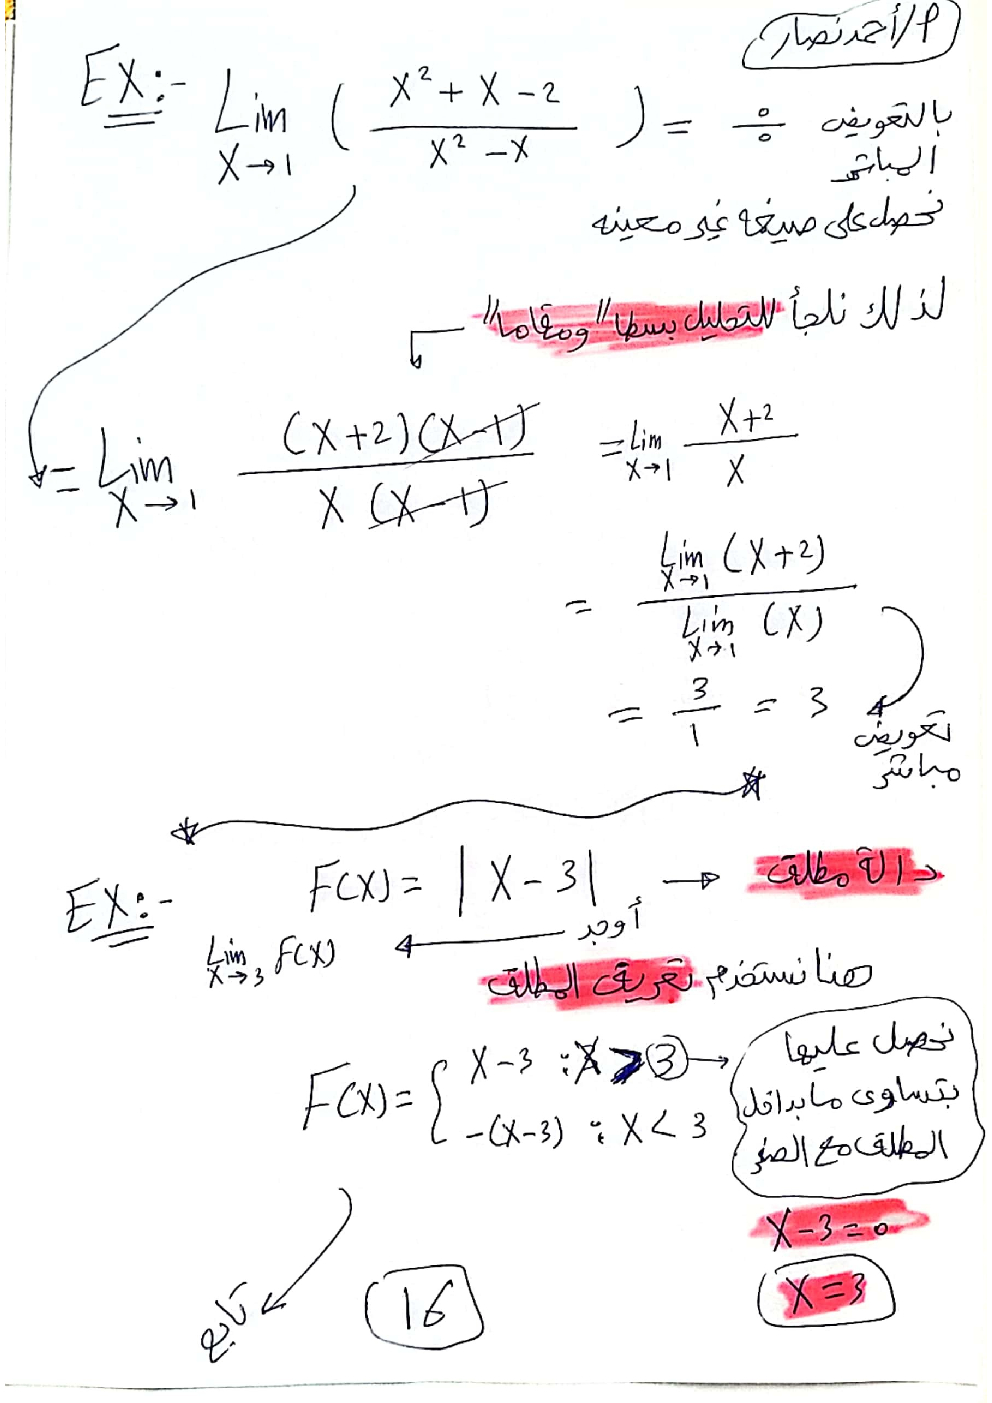 م/أحمد نصار
EX:- Lim X→1 ( X² + X - 2 / X² - X ) = 0/0 بالتعويض
المباشر
نحصل على صيغة غير معينه
لذلك نلجأ للتحليل بسطا" ومقاما"
= Lim X→1 (X+2)(X-1) / X (X-1) = Lim X→1 X+2 / X
= Lim X→1 (X+2) / Lim X→1 (X)
= 3/1 = 3
تعويض
مباشر
EX:- F(X) = |X-3| → دالة مطلق
أوجد Lim X→3 F(X)
هنا نستخدم تعريف المطلق
F(X) = { X-3 : X ⩾ 3
-(X-3) : X < 3
نحصل عليها
بتساوى ما بداخل
المطلق مع الصفر
X-3=0
X=3
16
تابع